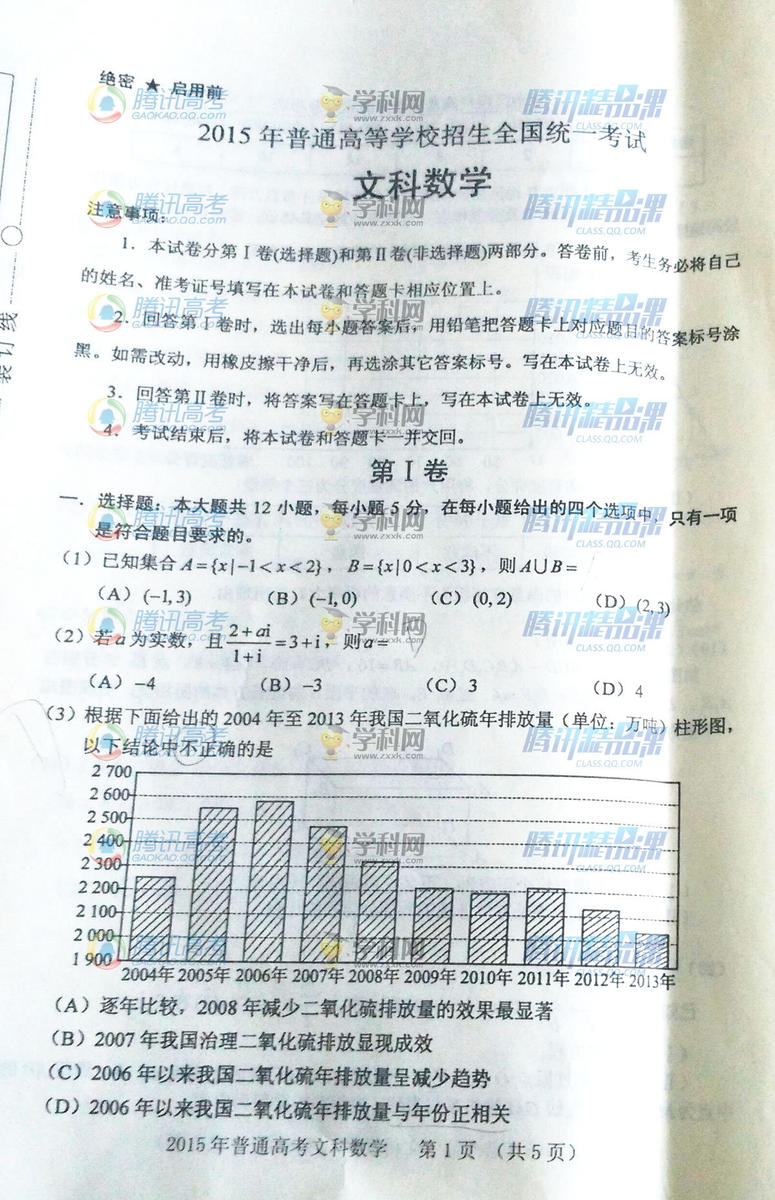 绝密 ★ 启用前
2015 年普通高等学校招生全国统一考试
文科数学
注意事项：
1．本试卷分第Ⅰ卷(选择题)和第Ⅱ卷(非选择题)两部分。答卷前，考生务必将自己
的姓名、准考证号填写在本试卷和答题卡相应位置上。
2．回答第Ⅰ卷时，选出每小题答案后，用铅笔把答题卡上对应题目的答案标号涂
黑。如需改动，用橡皮擦干净后，再选涂其它答案标号。写在本试卷上无效。
3．回答第Ⅱ卷时，将答案写在答题卡上，写在本试卷上无效。
4．考试结束后，将本试卷和答题卡一并交回。
第Ⅰ卷
一．选择题：本大题共 12 小题，每小题 5 分，在每小题给出的四个选项中，只有一项
是符合题目要求的。
（1）已知集合 A={x|-1<x<2}，B={x|0<x<3}，则A∪B=
（A）(-1,3) （B）(-1,0) （C）(0,2) （D）(2,3)
（2）若a为实数，且(2+ai)/(1+i)=3+i，则a=
（A）-4 （B）-3 （C）3 （D）4
（3）根据下面给出的 2004 年至 2013 年我国二氧化硫年排放量（单位：万吨）柱形图，
以下结论中不正确的是
2 700
2 600
2 500
2 400
2 300
2 200
2 100
2 000
1 900
2004年 2005年 2006年 2007年 2008年 2009年 2010年 2011年 2012年 2013年
（A）逐年比较，2008 年减少二氧化硫排放量的效果最显著
（B）2007 年我国治理二氧化硫排放显现成效
（C）2006 年以来我国二氧化硫年排放量呈减少趋势
（D）2006 年以来我国二氧化硫年排放量与年份正相关
2015 年普通高考文科数学 第 1 页 （共 5 页）
装订线
腾讯高考
GAOKAO.QQ.COM
学科网
www.zxxk.com
腾讯精品课
CLASS.QQ.COM